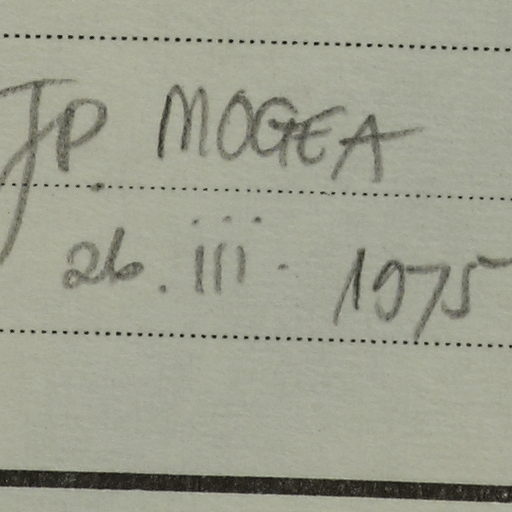 JP. MOGEA
26. iii. 1975